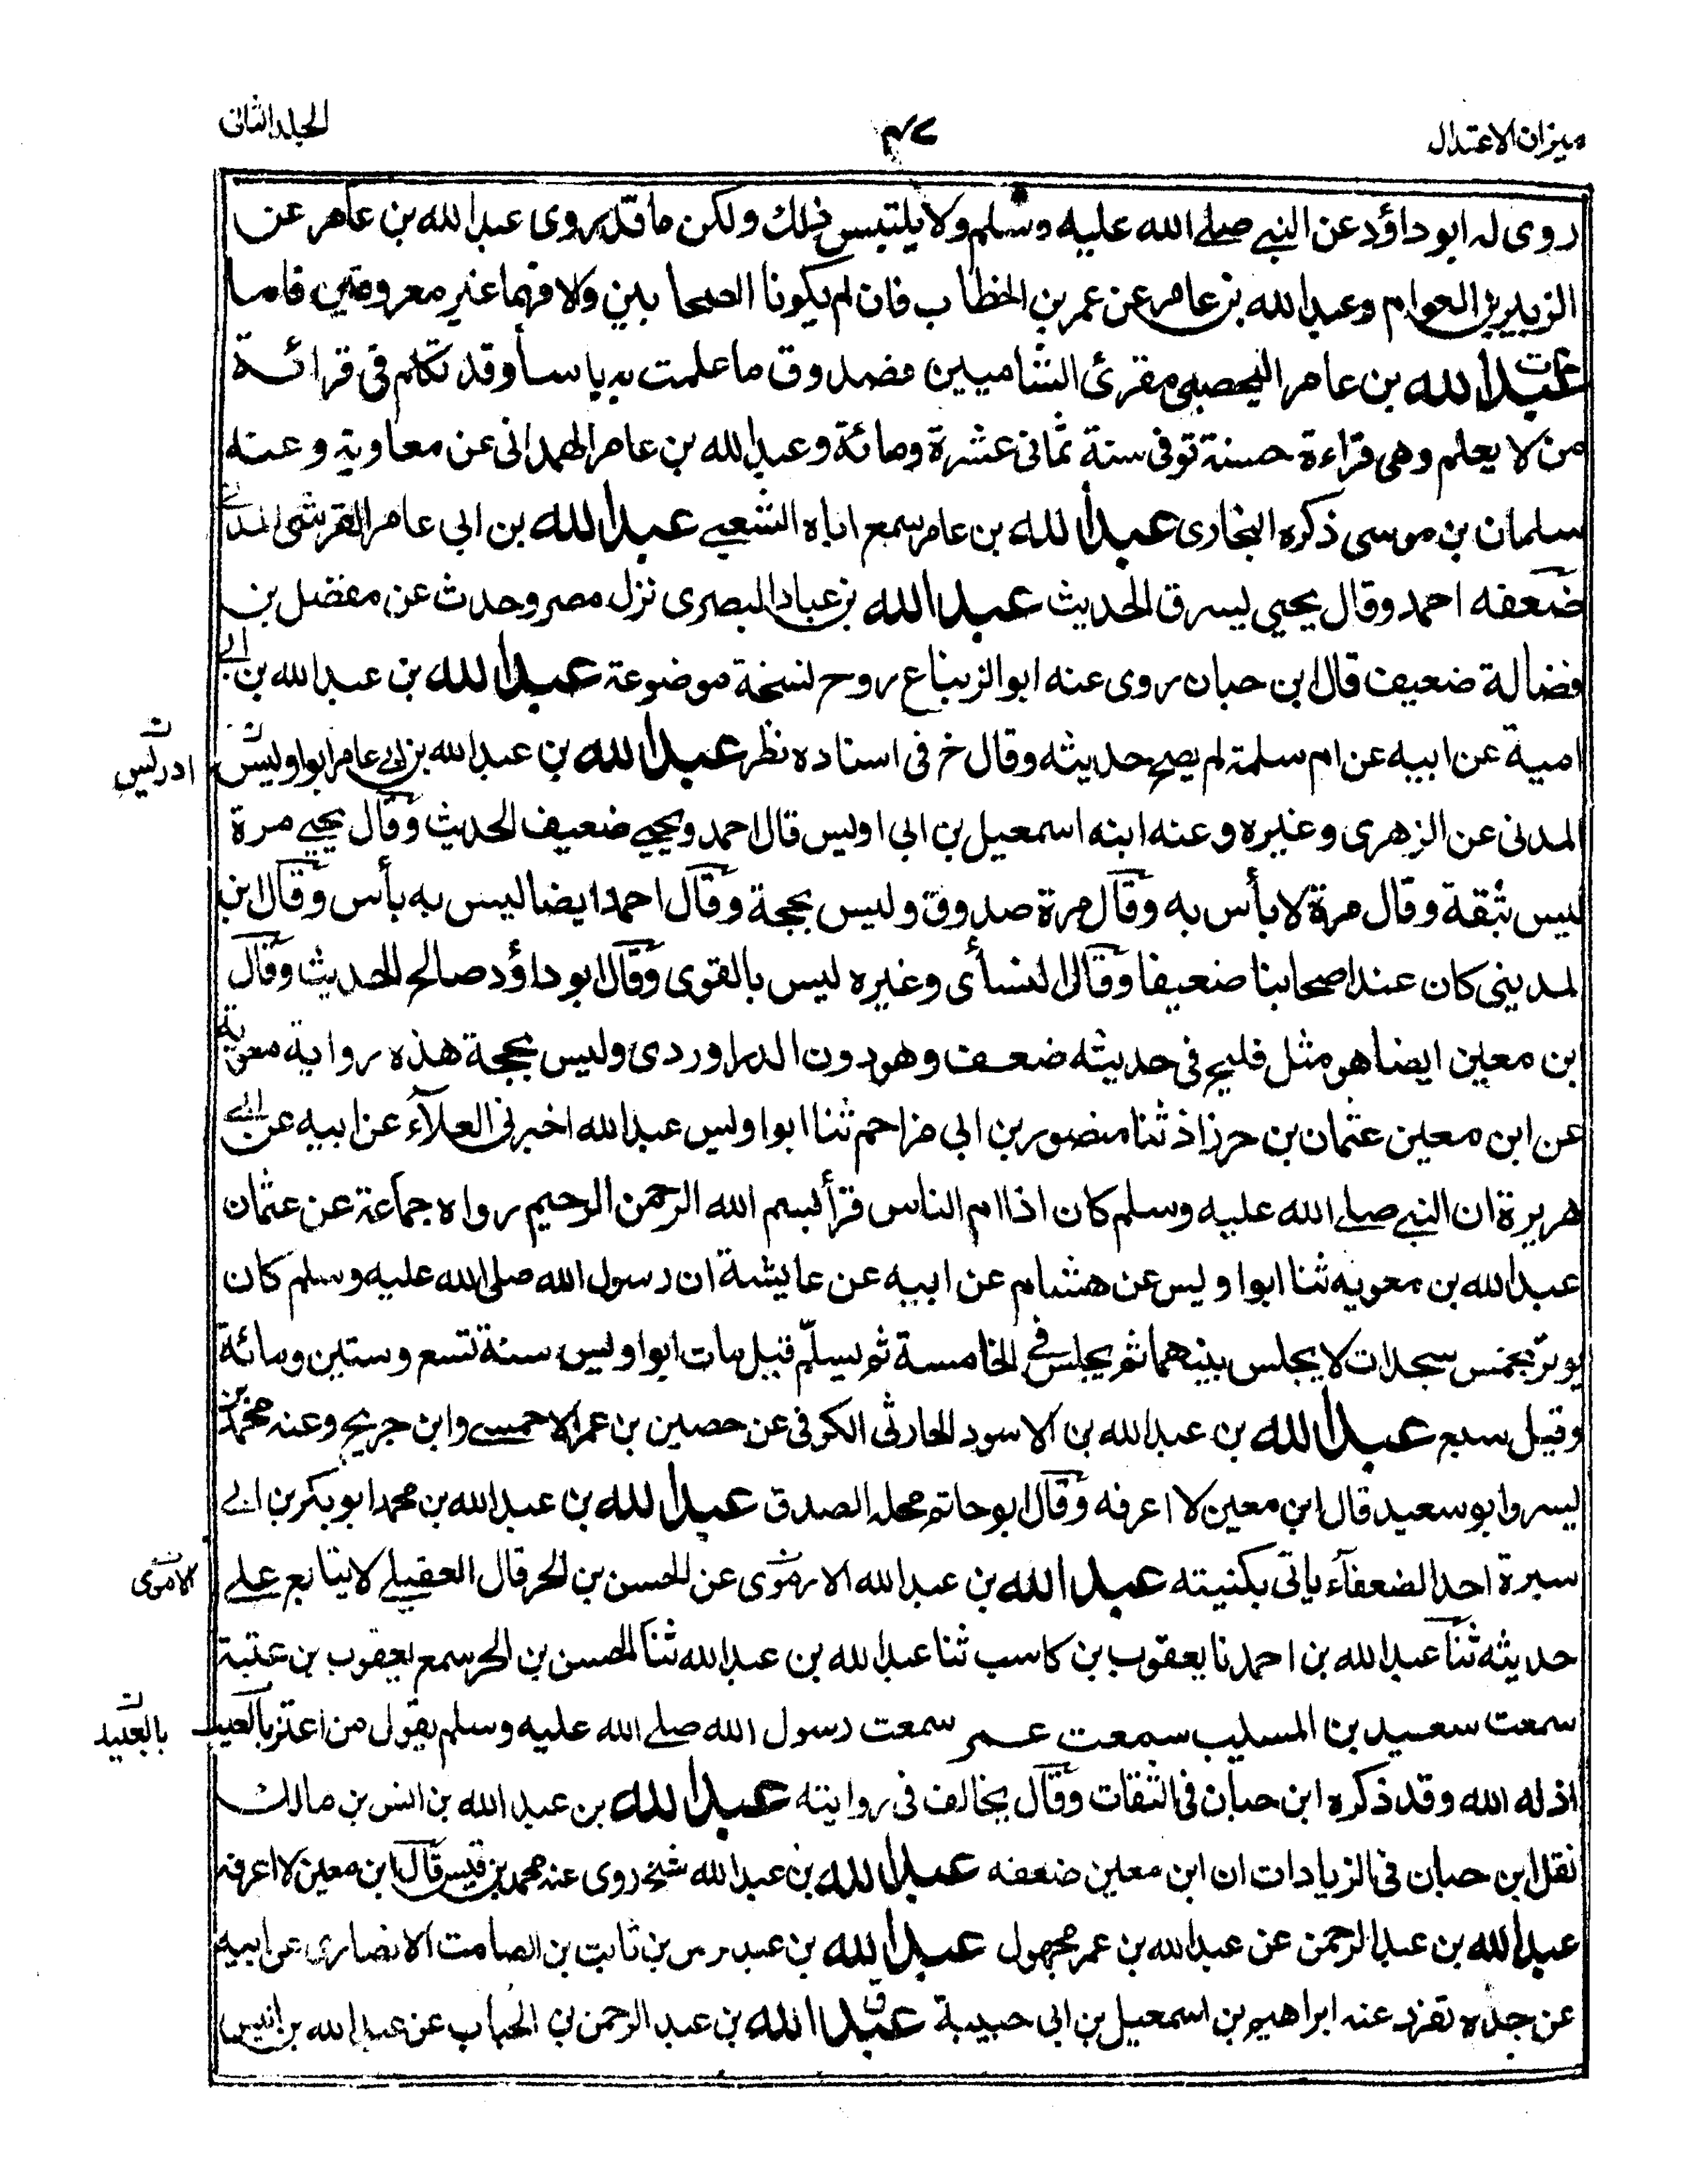 ميزان الاعتدال
٤٧
الجلد الثانى
روى له ابو داؤد عن النبى صلى الله عليه وسلم ولا يلتبس ذلك ولكن ما قد يروى عبد الله بن عامر عن
الزبير بن العوام وعبد الله بن عامر عن عمر بن الخطاب فان لم يكونا الصحابيين ولا فهما غير معروفين فاما
عبد الله بن عامر اليحصبى مقرئ الشاميين فصدوق ما علمت به باسا وقد تكلم فى قرائة
من لا يعلم وهى قراءة حسنة توفى سنة ثمانى عشرة ومائة وعبد الله بن عامر الهمدانى عن معاوية وعنه
سلمان بن موسى ذكره البخارى عبد الله بن عامر سمع اباه الشعبى عبد الله بن ابى عامر القرشى المدنى
ضعفه احمد وقال يحيى يسرق الحديث عبد الله بن عباد البصرى نزل مصر وحدث عن مفضل بن
فضالة ضعيف قال ابن حبان روى عنه ابو الزنباع روح نسخة موضوعة عبد الله بن عبد الله بن ابى
امية عن ابيه عن ام سلمة لم يصح حديثه وقال خ فى اسناده نظر عبد الله بن عبد الله بن ابى عامر ابو اويس
ادريس
المدنى عن الزهرى وغيره وعنه ابنه اسمعيل بن ابى اويس قال احمد ويحيى ضعيف الحديث وقال يحيى مرة
ليس بثقة وقال مرة لا بأس به وقال مرة صدوق وليس بحجة وقال احمد ايضا ليس به بأس وقال ابن
لمدينى كان عند اصحابنا ضعيفا وقال النسأى وغيره ليس بالقوى وقال ابو داؤد صالح الحديث وقال
ابن معين ايضا هو مثل فليح فى حديثه ضعف وهو دون الدراوردى وليس بحجة هذه رواية معوية
عن ابن معين عثمان بن حرزاذ ثنا منصور بن ابى مزاحم ثنا ابو اويس عبد الله اخبرنى العلآء عن ابيه عن ابى
هريرة ان النبى صلى الله عليه وسلم كان اذا ام الناس قرأ بسم الله الرحمن الرحيم رواه جماعة عن عثمان
عبد الله بن معويه ثنا ابو اويس عن هشام عن ابيه عن عايشة ان رسول الله صلى الله عليه وسلم كان
يوتر بخمس سجدات لا يجلس بينهما ثم يجلس فى الخامسة ثم يسلم قيل مات ابو اويس سنة تسع وستين ومائة
وقيل سبع عبد الله بن عبد الله بن الاسود الحارثى الكوفى عن حصين بن عمر الاحمسى وابن جريح وعنه محمد بن
يسر وابو سعيد قال ابن معين لا اعرفه وقال ابو حاتم محله الصدق عبد الله بن عبد الله بن محمد ابو بكر بن ابى
سبرة احد الضعفآء ياتى بكنيته عبد الله بن عبد الله الارموى عن الحسن بن الحر قال العقيلى لا يتابع على
الاموى
حديثه ثنا عبد الله بن احمد نا يعقوب بن كاسب ثنا عبد الله بن عبد الله ثنا الحسن بن الحر سمع يعقوب بن عتبة
سمعت سعيد بن المسيب سمعت عمر سمعت رسول الله صلى الله عليه وسلم يقول من اعتز بالعبد
بالعبيد
اذله الله وقد ذكره ابن حبان فى الثقات وقال يخالف فى روايته عبد الله بن عبد الله بن انس بن مالك
نقل ابن حبان فى الزيادات ان ابن معين ضعفه عبد الله بن عبد الله شيخ روى عنه محمد بن قيس قال ابن معين لا اعرفه
عبد الله بن عبد الرحمن عن عبد الله بن عمر مجهول عبد الله بن عبد رس بن ثابت بن الصامت الانصارى عن ابيه
عن جده تفرد عنه ابراهيم بن اسمعيل بن ابى حبيبة عبد الله بن عبد الرحمن بن الحباب عن عبد الله بن انيس